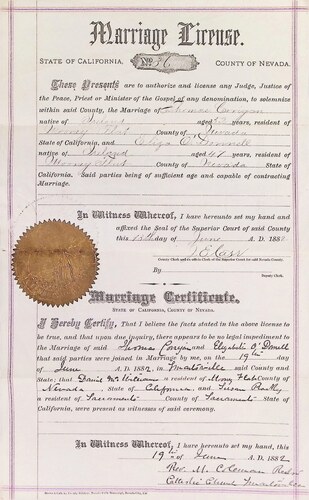 Marriage License.
STATE OF CALIFORNIA, No. 36 COUNTY OF NEVADA.
These Presents are to authorize and license any Judge, Justice of
the Peace, Priest or Minister of the Gospel of any denomination, to solemnize
within said County, the Marriage of Thomas Conyan
native of Ireland aged years, resident of
Moony Flat County of Nevada
State of California, and Eliza O'Donnell
native of Ireland aged 47 years, resident of
Moony Flat County of Nevada State of
California. Said parties being of sufficient age and capable of contracting
Marriage.
In Witness Whereof, I have hereunto set my hand and
affixed the Seal of the Superior Court of said County
this 15th day of June A. D. 1882
County Clerk and ex-officio Clerk of the Superior Court for said Nevada County.
By
Deputy Clerk.
Marriage Certificate.
STATE OF CALIFORNIA, COUNTY OF NEVADA.
I Hereby Certify, That I believe the facts stated in the above license
to be true, and that upon due inquiry, there appears to be no legal impediment to
the Marriage of said Thomas Conyan and Elizabeth O'Donnell
that said parties were joined in Marriage by me, on the 19th day
of June A. D. 1882, in Smartsville said County and
State; that Daniel McWilliams a resident of Moony Flat County of
Nevada State of California and Susan
a resident of Sacramento County of Sacramento State of
California, were present as witnesses of said ceremony.
In Witness Whereof, I have hereunto set my hand, this
19th of June A. D. 1882
Rev. M. Coleman
Smartsville